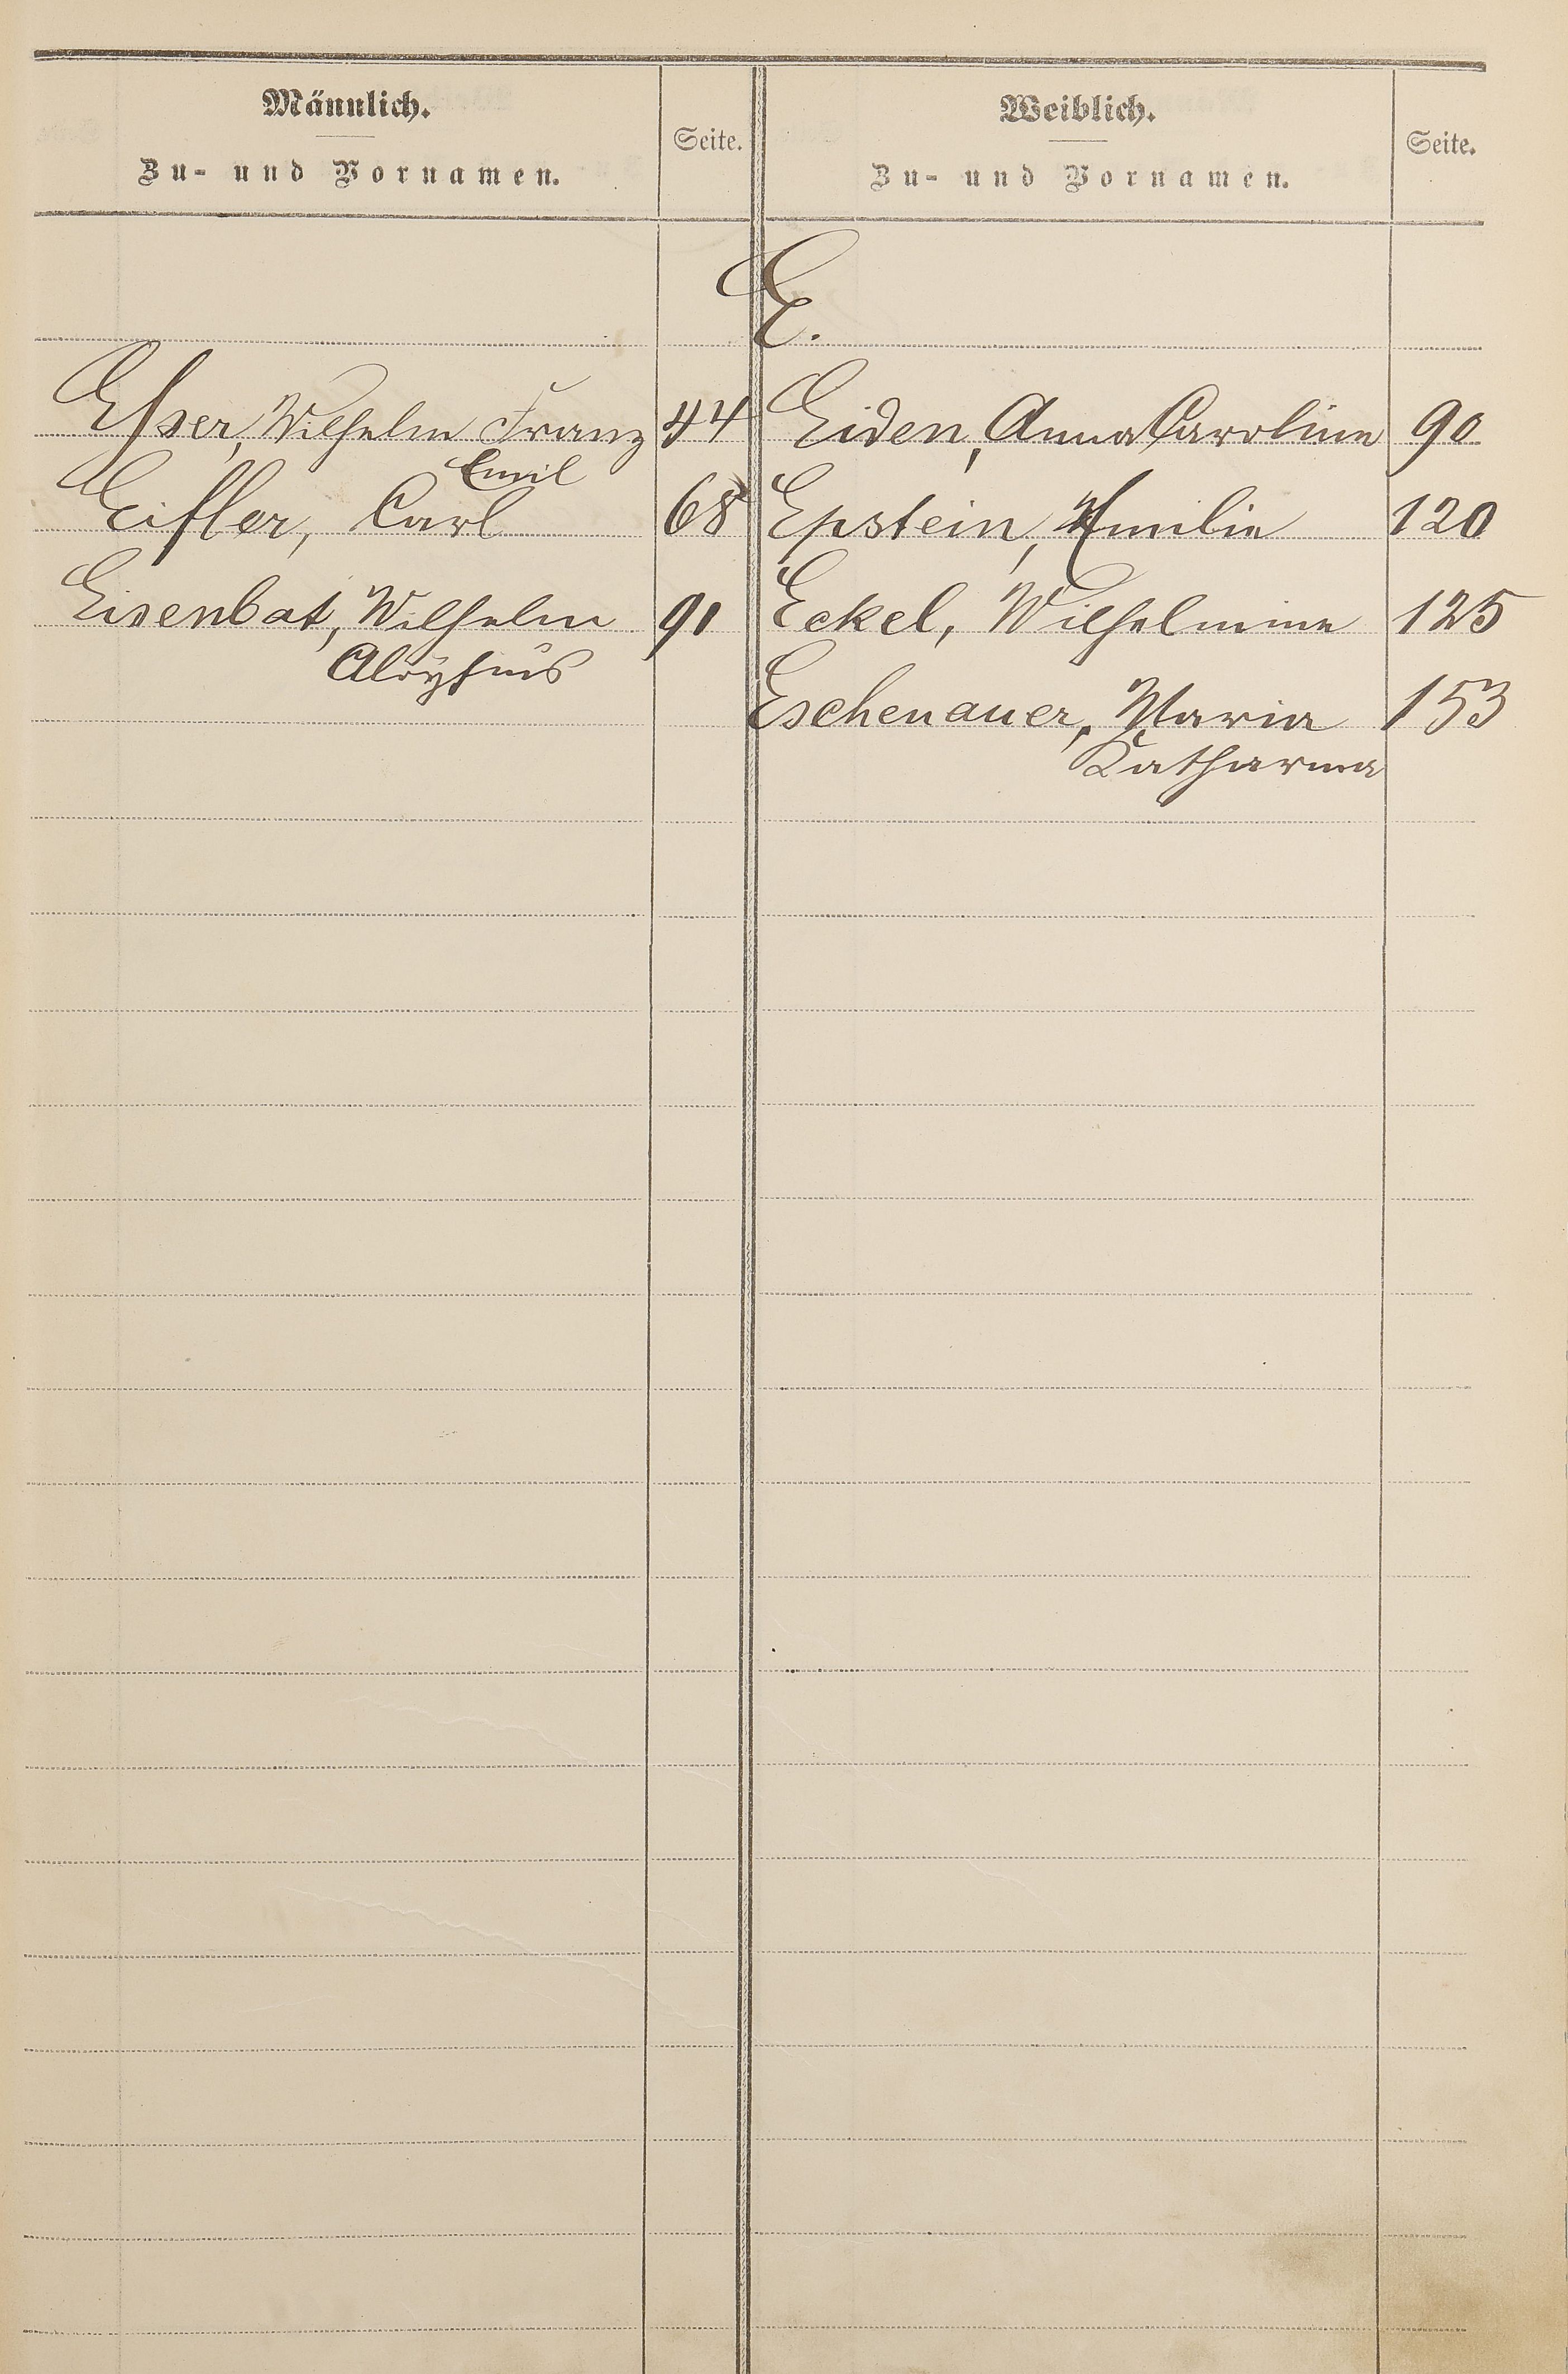 Männlich.
Zu- und Vornamen.
Seite.
Weiblich.
Zu- und Vornamen.
Seite.
E.
Esser, Wilhelm Franz 44
Emil
Eifler, Carl 68
Eisenbat, Wilhelm 91
Aloÿsius
Eiden, Anna Caroline 90
Epstein, Emilie 120
Eckel, Wilhelmine 125
Eschenauer, Maria 153
Katharina